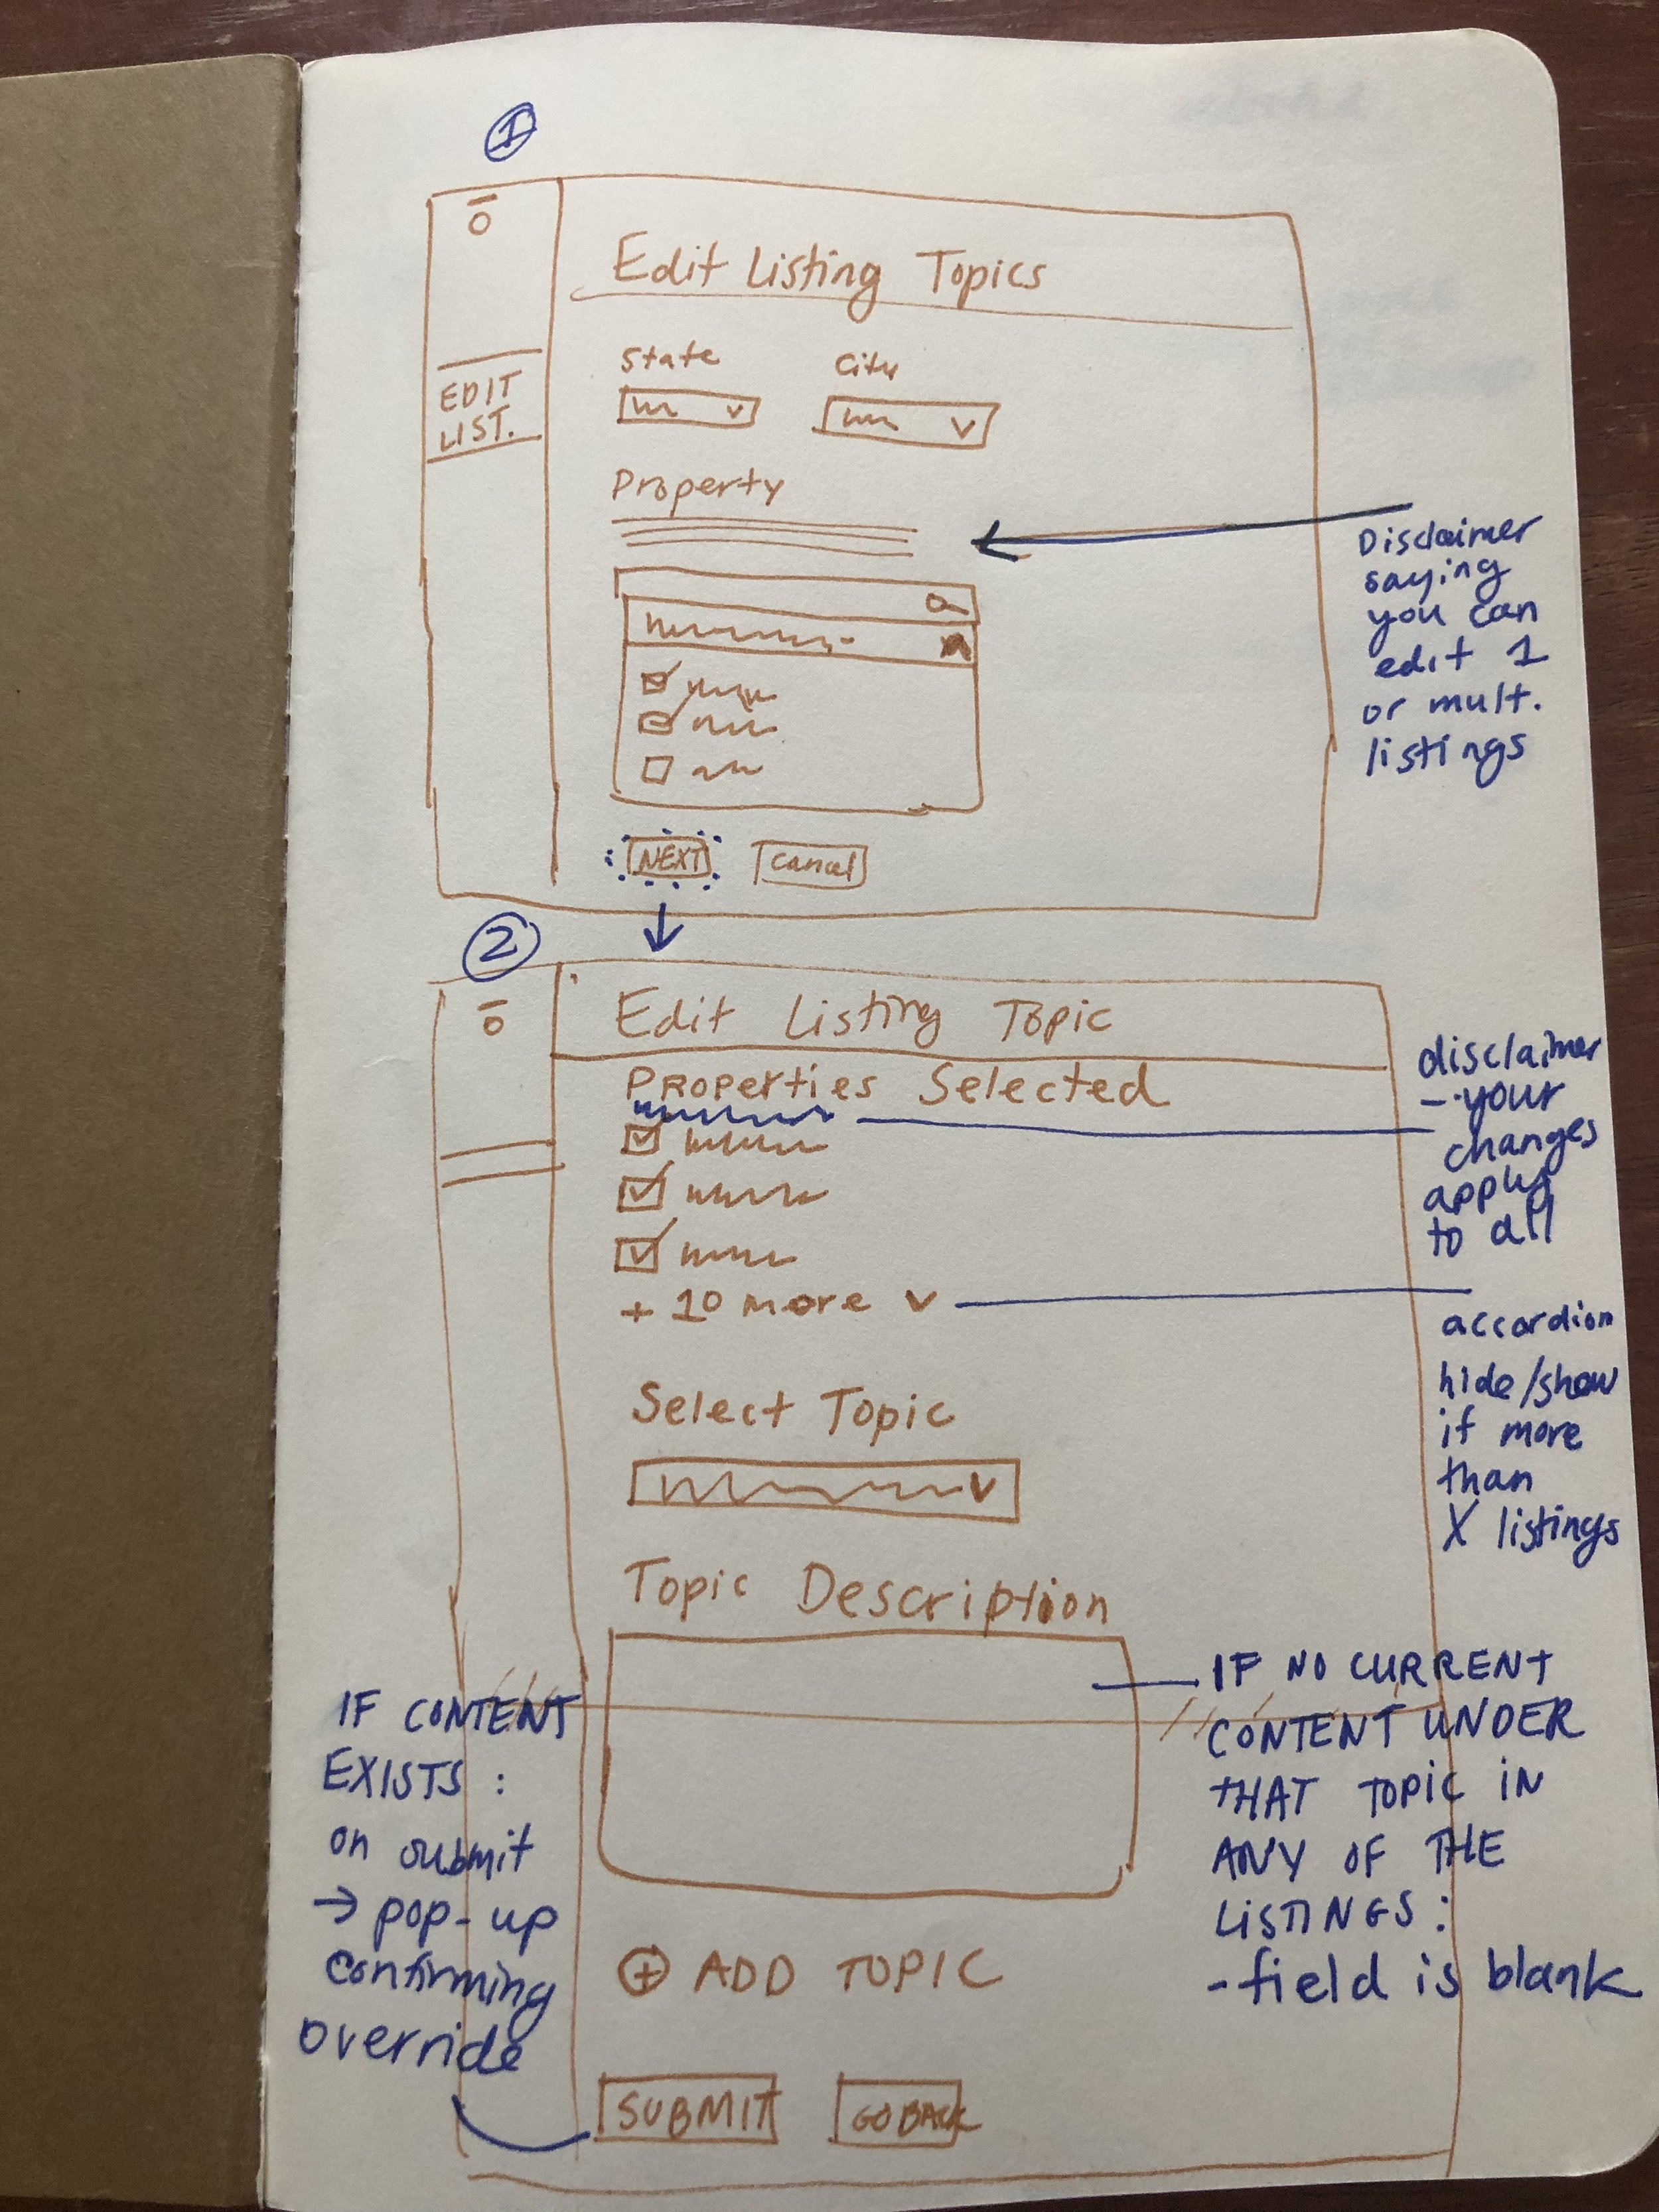 1
Edit Listing Topics
State City
EDIT
LIST.
Property
Disclaimer
saying
you can
edit 1
or mult.
listings
NEXT Cancel
2
Edit Listing Topic
Properties Selected
disclaimer
- your
changes
apply
to all
+ 10 more
accordion
hide/show
if more
than
X listings
Select Topic
Topic Description
IF NO CURRENT
CONTENT UNDER
THAT TOPIC IN
ANY OF THE
LISTINGS:
- field is blank
IF CONTENT
EXISTS:
on submit
→ pop-up
confirming
override
+ ADD TOPIC
SUBMIT GO BACK